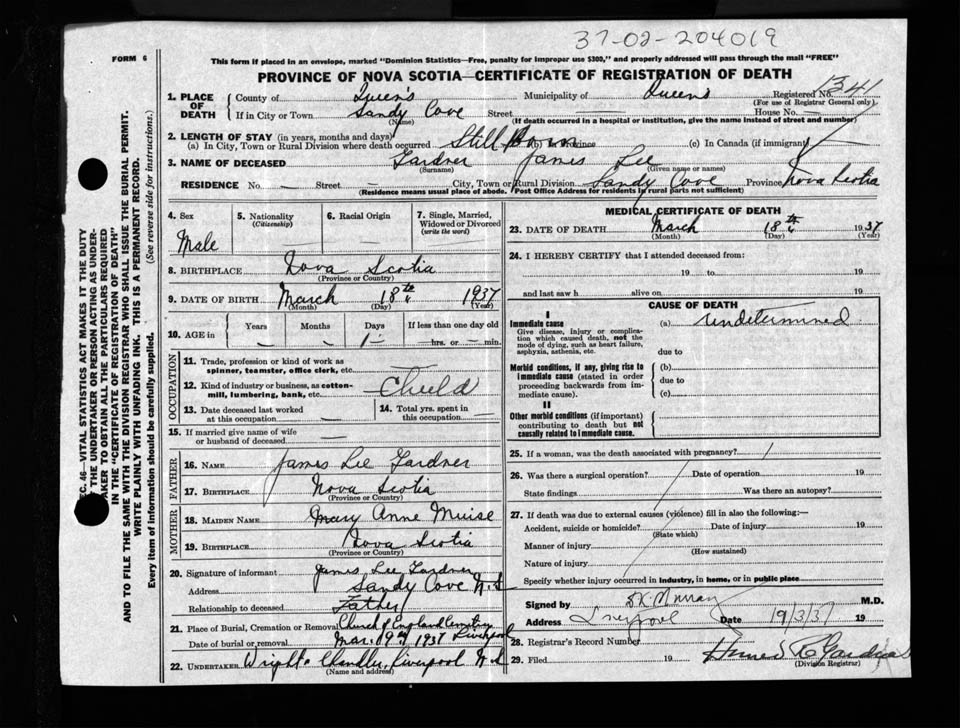 37-02-204019
FORM 6
This form if placed in an envelope, marked "Dominion Statistics—Free, penalty for improper use $300," and properly addressed will pass through the mail "FREE"
PROVINCE OF NOVA SCOTIA—CERTIFICATE OF REGISTRATION OF DEATH
1. PLACE OF DEATH County of Queen's Municipality of Queens Registered No. 1341
(For use of Registrar General only).
If in City or Town Sandy Cove Street House No. —
(Name) (If death occurred in a hospital or institution, give the name instead of street and number)
2. LENGTH OF STAY (in years, months and days)
(a) In City, Town or Rural Division where death occurred Still Born (b) Province (c) In Canada (if immigrant)
3. NAME OF DECEASED Gardner James Lee
(Surname) (Given name or names)
RESIDENCE No. — Street — City, Town or Rural Division Sandy Cove Province Nova Scotia
(Residence means usual place of abode. Post Office Address for residents in rural parts not sufficient)
4. Sex
Male
5. Nationality
(Citizenship)
—
6. Racial Origin
—
7. Single, Married, Widowed or Divorced
(write the word)
—
8. BIRTHPLACE Nova Scotia
(Province or Country)
9. DATE OF BIRTH March 18th 1937
(Month) (Day) (Year)
10. AGE in Years Months Days If less than one day old
— — 1 — hrs. or — min.
OCCUPATION
11. Trade, profession or kind of work as
spinner, teamster, office clerk, etc. —
12. Kind of industry or business, as cotton-
mill, lumbering, bank, etc. Child
13. Date deceased last worked
at this occupation —
14. Total yrs. spent in
this occupation —
15. If married give name of wife
or husband of deceased —
FATHER
16. NAME James Lee Gardner
17. BIRTHPLACE Nova Scotia
(Province or Country)
MOTHER
18. MAIDEN NAME Mary Anne Muise
19. BIRTHPLACE Nova Scotia
(Province or Country)
20. Signature of informant James Lee Gardner
Address Sandy Cove N.S
Relationship to deceased Father
21. Place of Burial, Cremation or Removal Church of England Cemetery
Date of burial or removal Mar. 19th 1937 Liverpool
22. UNDERTAKER Wright & Chandler, Liverpool N.S
(Name and address)
MEDICAL CERTIFICATE OF DEATH
23. DATE OF DEATH March 18th 1937
(Month) (Day) (Year)
24. I HEREBY CERTIFY that I attended deceased from:
19 to 19
and last saw h alive on 19
CAUSE OF DEATH
I
Immediate cause (a) Undetermined
Give disease, injury or complica-
tion which caused death, not the
mode of dying, such as heart failure,
asphyxia, asthenia, etc. due to
Morbid conditions, if any, giving rise to (b)
immediate cause (stated in order due to
proceeding backwards from im-
mediate cause). (c)
II
Other morbid conditions (if important)
contributing to death but not
causally related to immediate cause.
25. If a woman, was the death associated with pregnancy?
26. Was there a surgical operation? Date of operation 19
State findings Was there an autopsy?
27. If death was due to external causes (violence) fill in also the following:—
Accident, suicide or homicide? Date of injury 19
(State which)
Manner of injury
(How sustained)
Nature of injury
Specify whether injury occurred in industry, in home, or in public place
Signed by Murray M.D.
Address Liverpool Date 19/3/37 19
28. Registrar's Record Number
29. Filed 19
(Division Registrar)
SEC. 46—VITAL STATISTICS ACT MAKES IT THE DUTY
OF THE UNDERTAKER OR PERSON ACTING AS UNDER-
TAKER TO OBTAIN ALL THE PARTICULARS REQUIRED
IN THE "CERTIFICATE OF REGISTRATION OF DEATH"
AND TO FILE THE SAME WITH THE DIVISION REGISTRAR WHO SHALL ISSUE THE BURIAL PERMIT.
WRITE PLAINLY WITH UNFADING INK. THIS IS A PERMANENT RECORD.
Every item of information should be carefully supplied. (See reverse side for instructions.)